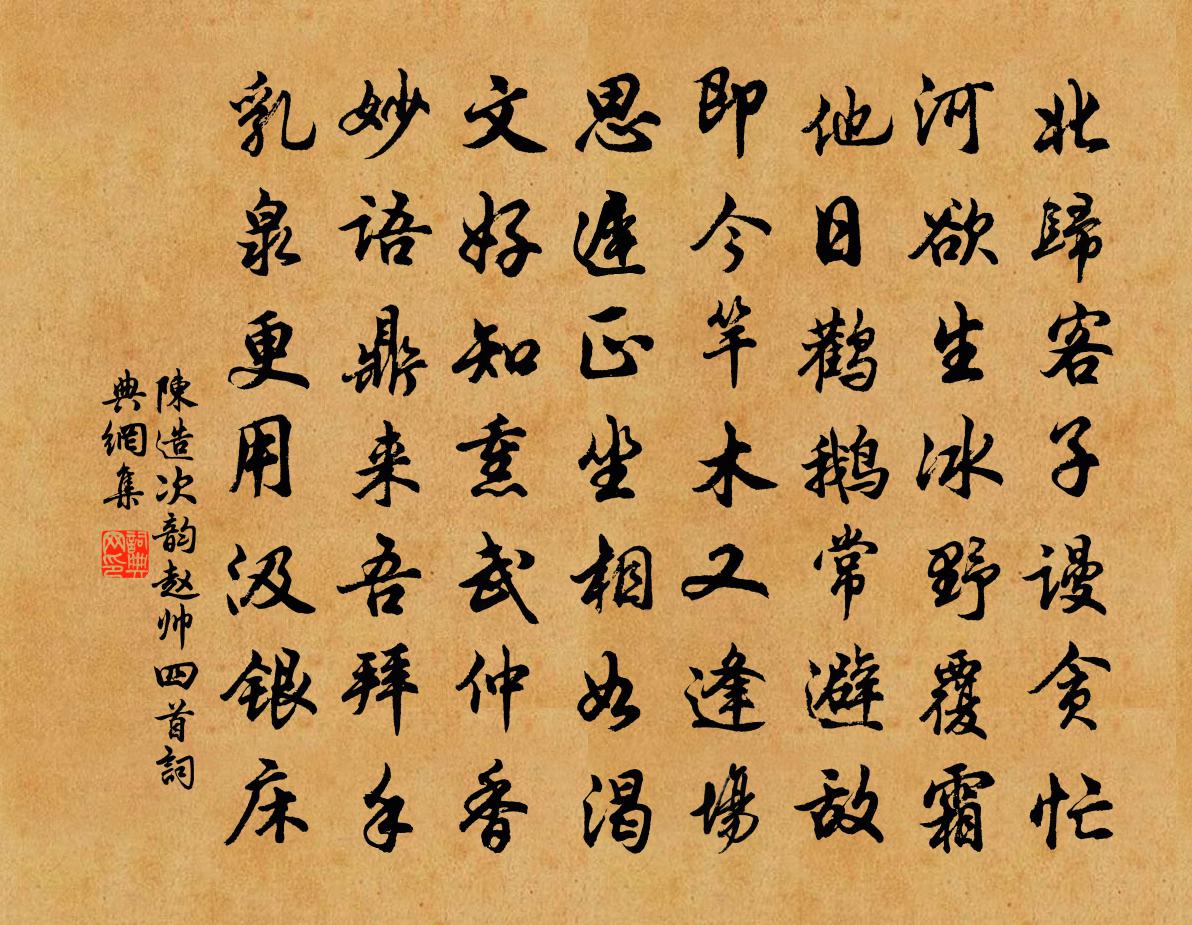 北歸客子謾貪忙
河欲生冰野覆霜
他日鸛鵝常避敌
即今竿木又逢場
思遲正坐相如渴
文好知熏武仲香
妙語鼎来吾拜手
乳泉更用汲銀床
陳造次韵赵帅四首詞
典網集
詞典网印